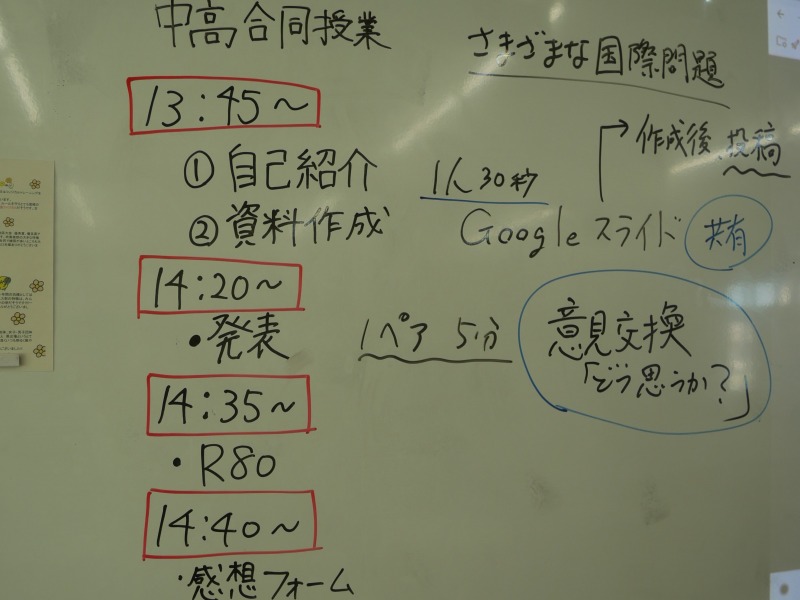 中高合同授業
さまざまな国際問題
13:45～
作成後、投稿
① 自己紹介
1人30秒
② 資料作成
Google スライド 共有
14:20～
・発表
1ペア 5分
意見交換
「どう思うか?」
14:35～
・R80
14:40～
・感想フォーム